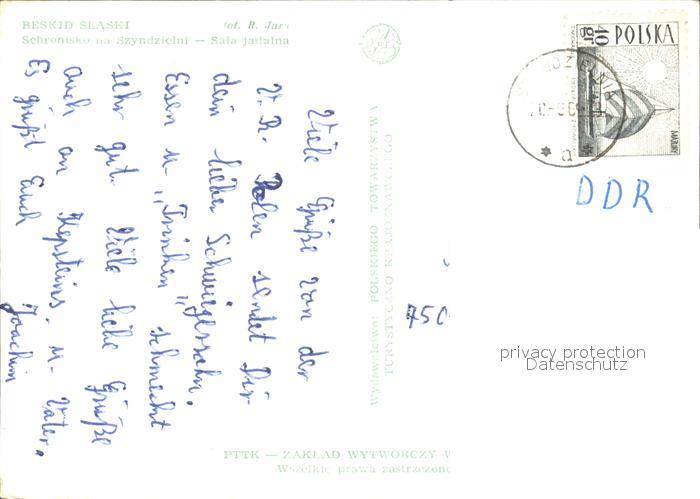 BESKID ŚLĄSKI
fot. R. Jurs
Schronisko na Szyndzielni — Sala jadalna
40 gr POLSKA
MAZURY
DDR
Viele Grüße von der
V. R. Polen sendet Dir
dein lieber Schwiegersohn.
Essen u. „Trinken" schmeckt
sehr gut. Viele liebe Grüße
auch an Hepsteins. u- Väter.
Es grüßt Euch
Joachim
Wydawnictwo: POLSKIEGO TOWARZYSTWA
TURYSTYCZNO KRAJOZNAWCZEGO
750
privacy protection
Datenschutz
PTTK — ZAKŁAD WYTWÓRCZY W
Wszelkie prawa zastrzeżone